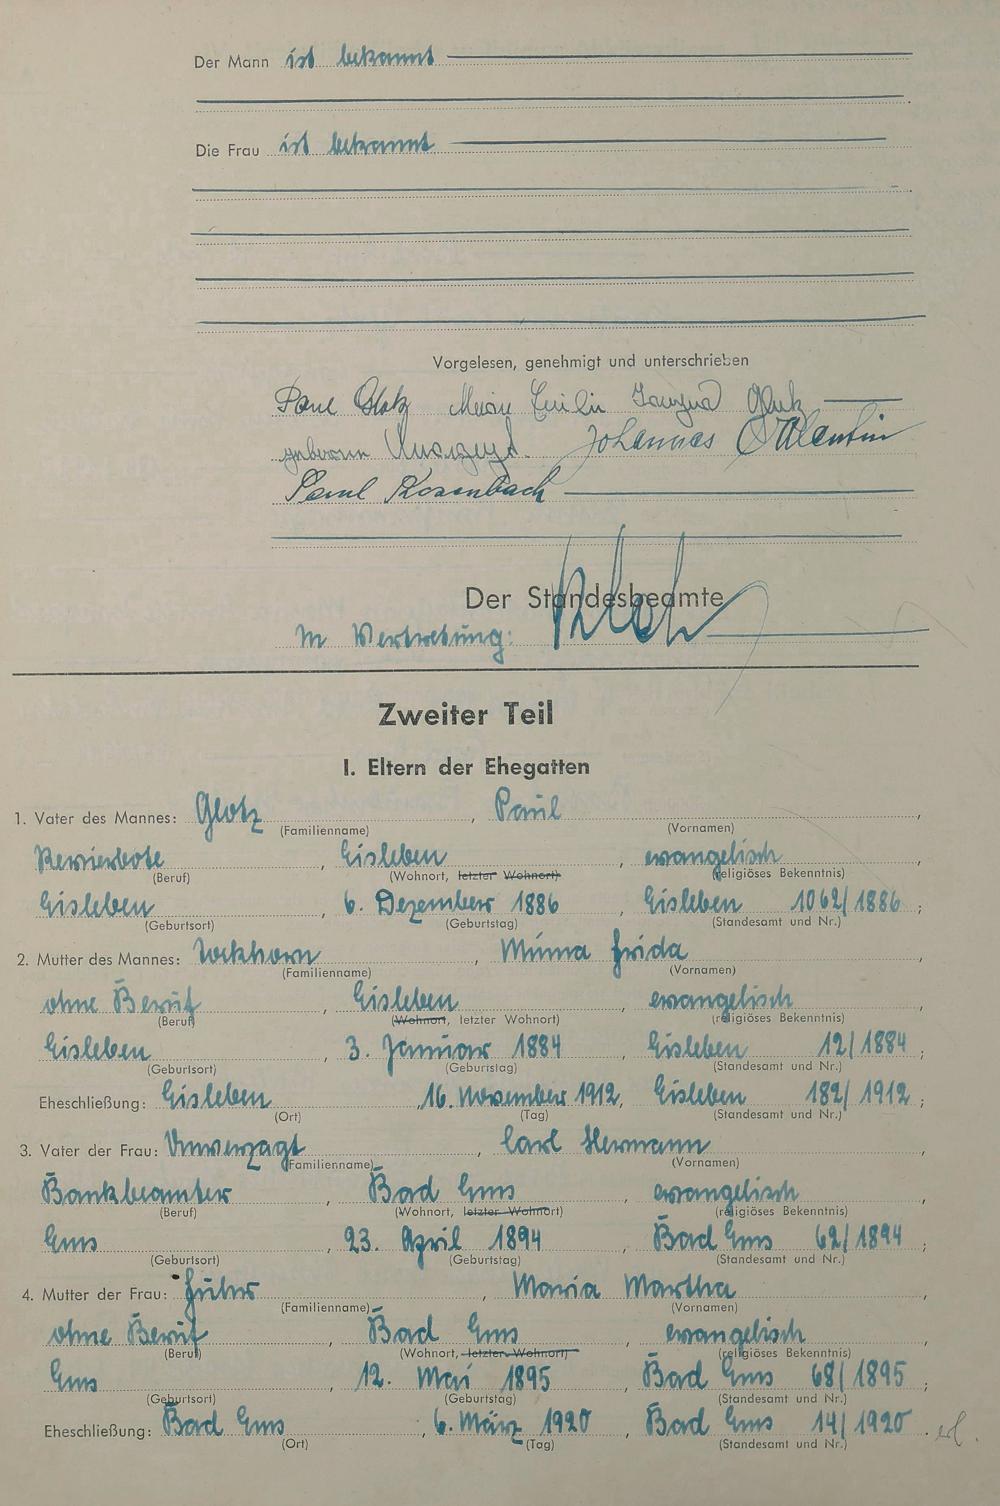 Der Mann ist bekannt
Die Frau ist bekannt
Vorgelesen, genehmigt und unterschrieben
Paul Glotz Marie Emilie Glotz
geborene Unverzagt. Johannes
Paul Rosenbach
Der Standesbeamte
In Vertretung:
Zweiter Teil
I. Eltern der Ehegatten
1. Vater des Mannes: Glotz, Paul,
(Familienname) (Vornamen)
Revierbote, Eisleben, evangelisch,
(Beruf) (Wohnort, letzter Wohnort) (religiöses Bekenntnis)
Eisleben, 6. Dezember 1886, Eisleben 1062/1886;
(Geburtsort) (Geburtstag) (Standesamt und Nr.)
2. Mutter des Mannes: Minna Frida,
(Familienname) (Vornamen)
ohne Beruf, Eisleben, evangelisch,
(Beruf) (Wohnort, letzter Wohnort) (religiöses Bekenntnis)
Eisleben, 3. Januar 1884, Eisleben 12/1884;
(Geburtsort) (Geburtstag) (Standesamt und Nr.)
Eheschließung: Eisleben, 16. November 1912, Eisleben 182/1912;
(Ort) (Tag) (Standesamt und Nr.)
3. Vater der Frau: Unverzagt, Carl Hermann,
(Familienname) (Vornamen)
Bankbeamter, Bad Ems, evangelisch,
(Beruf) (Wohnort, letzter Wohnort) (religiöses Bekenntnis)
Ems, 23. April 1894, Bad Ems 62/1894;
(Geburtsort) (Geburtstag) (Standesamt und Nr.)
4. Mutter der Frau: Maria Martha,
(Familienname) (Vornamen)
ohne Beruf, Bad Ems, evangelisch,
(Beruf) (Wohnort, letzter Wohnort) (religiöses Bekenntnis)
Ems, 12. Mai 1895, Bad Ems 68/1895;
(Geburtsort) (Geburtstag) (Standesamt und Nr.)
Eheschließung: Bad Ems, 6. März 1920, Bad Ems 14/1920. erl.
(Ort) (Tag) (Standesamt und Nr.)